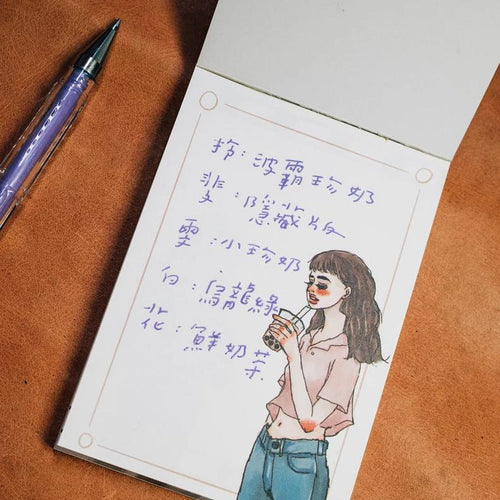 拎：波霸珍奶
斐：隱藏版
雯：小珍奶
白：烏龍綠
花：鮮奶茶